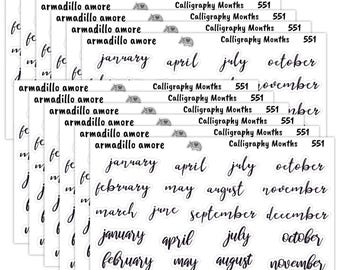 armadillo amore Calligraphy Months 551
armadillo amore Calligraphy Months 551
armadillo amore Calligraphy Months 551
armadillo amore Calligraphy Months 551
january april july october
armadillo amore Calligraphy Months 551
armadillo amore Calligraphy Months 551
armadillo amore Calligraphy Months 551
armadillo amore Calligraphy Months 551
armadillo amore Calligraphy Months 551
january april july october
february may august november
march june september december
january april july october
february may august november